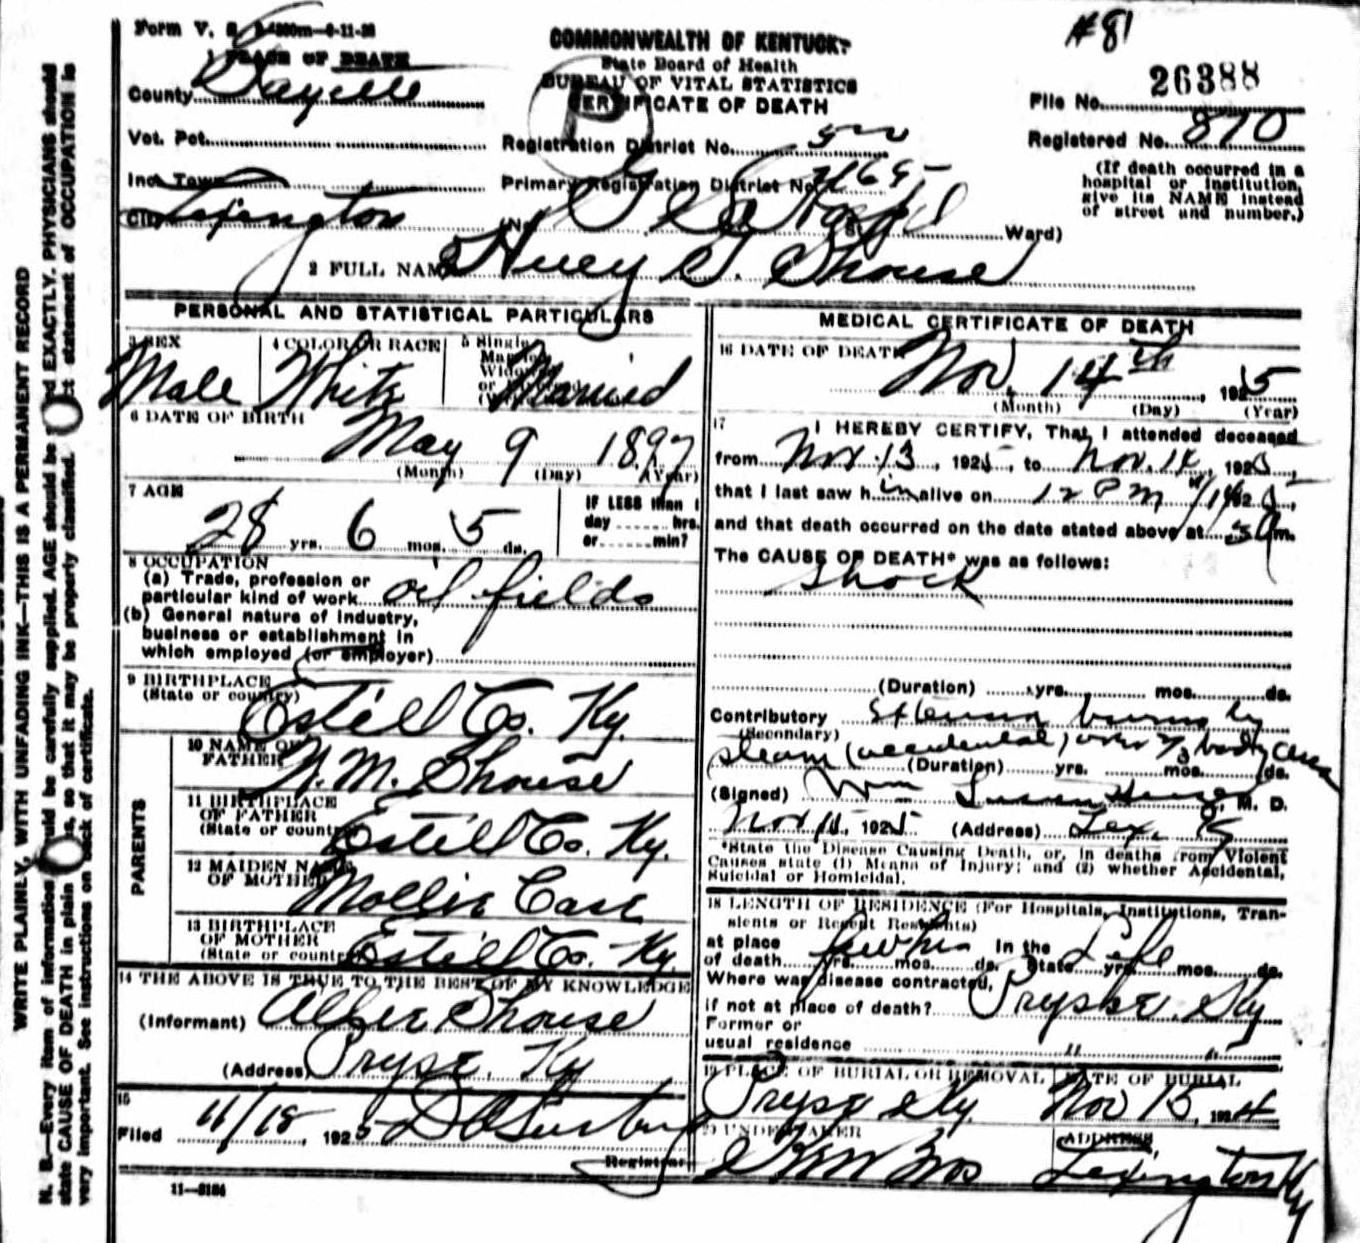 Form V. S.
#81
COMMONWEALTH OF KENTUCKY
State Board of Health
BUREAU OF VITAL STATISTICS
CERTIFICATE OF DEATH
1 PLACE OF DEATH
County Fayette
File No. 26388
Vot. Pct.
Registration District No.
Registered No. 870
Inc. Town
Primary Registration District No.
(If death occurred in a
hospital or institution,
give its NAME instead
of street and number.)
City Lexington
(No. Ward)
2 FULL NAME Huey G. Shouse
PERSONAL AND STATISTICAL PARTICULARS
3 SEX
4 COLOR OR RACE
5 Single
Male White Married
6 DATE OF BIRTH
May 9 1897
(Month) (Day) (Year)
7 AGE
28 yrs. 6 mos. 5 ds.
IF LESS than 1
day ...... hrs.
or ...... min?
8 OCCUPATION
(a) Trade, profession or
particular kind of work oil fields
(b) General nature of industry,
business or establishment in
which employed (or employer)
9 BIRTHPLACE
(State or country)
Estill Co. Ky.
PARENTS
10 NAME OF
FATHER M. Shouse
11 BIRTHPLACE
OF FATHER
(State or country) Estill Co. Ky.
12 MAIDEN NAME
OF MOTHER Mollie Case
13 BIRTHPLACE
OF MOTHER
(State or country) Estill Co. Ky
14 THE ABOVE IS TRUE TO THE BEST OF MY KNOWLEDGE
(Informant) Shouse
(Address) Pryse, Ky
15
Filed 11/18, 1925
Registrar
11—3184
MEDICAL CERTIFICATE OF DEATH
16 DATE OF DEATH
Nov. 14th, 1925
(Month) (Day) (Year)
17 I HEREBY CERTIFY, That I attended deceased
from Nov. 13, 1925, to Nov. 14, 1925,
that I last saw him alive on 12 PM
and that death occurred on the date stated above at m.
The CAUSE OF DEATH* was as follows:
Shock
(Duration) yrs. mos. ds.
Contributory burns by
(Secondary)
steam (accidental) over 2/3 body
(Duration) yrs. mos. ds.
(Signed) Wm M. D.
Nov 1925 (Address) Lex. Ky
*State the Disease Causing Death, or, in deaths from Violent
Causes state (1) Means of Injury; and (2) whether Accidental,
Suicidal or Homicidal.
18 LENGTH OF RESIDENCE (For Hospitals, Institutions, Tran-
sients or Recent Residents)
at place
of death few hrs yrs. mos. ds. In the State Life yrs. mos. ds.
Where was disease contracted,
if not at place of death? Ky
Former or
usual residence " "
19 PLACE OF BURIAL OR REMOVAL
DATE OF BURIAL
Pryse Ky. Nov 15, 1924
20 UNDERTAKER
ADDRESS
Bros Lexington Ky
WRITE PLAINLY, WITH UNFADING INK—THIS IS A PERMANENT RECORD
N. B.—Every item of information should be carefully supplied. AGE should be stated EXACTLY. PHYSICIANS should
state CAUSE OF DEATH in plain terms, so that it may be properly classified. Exact statement of OCCUPATION is
very important. See instructions on back of certificate.